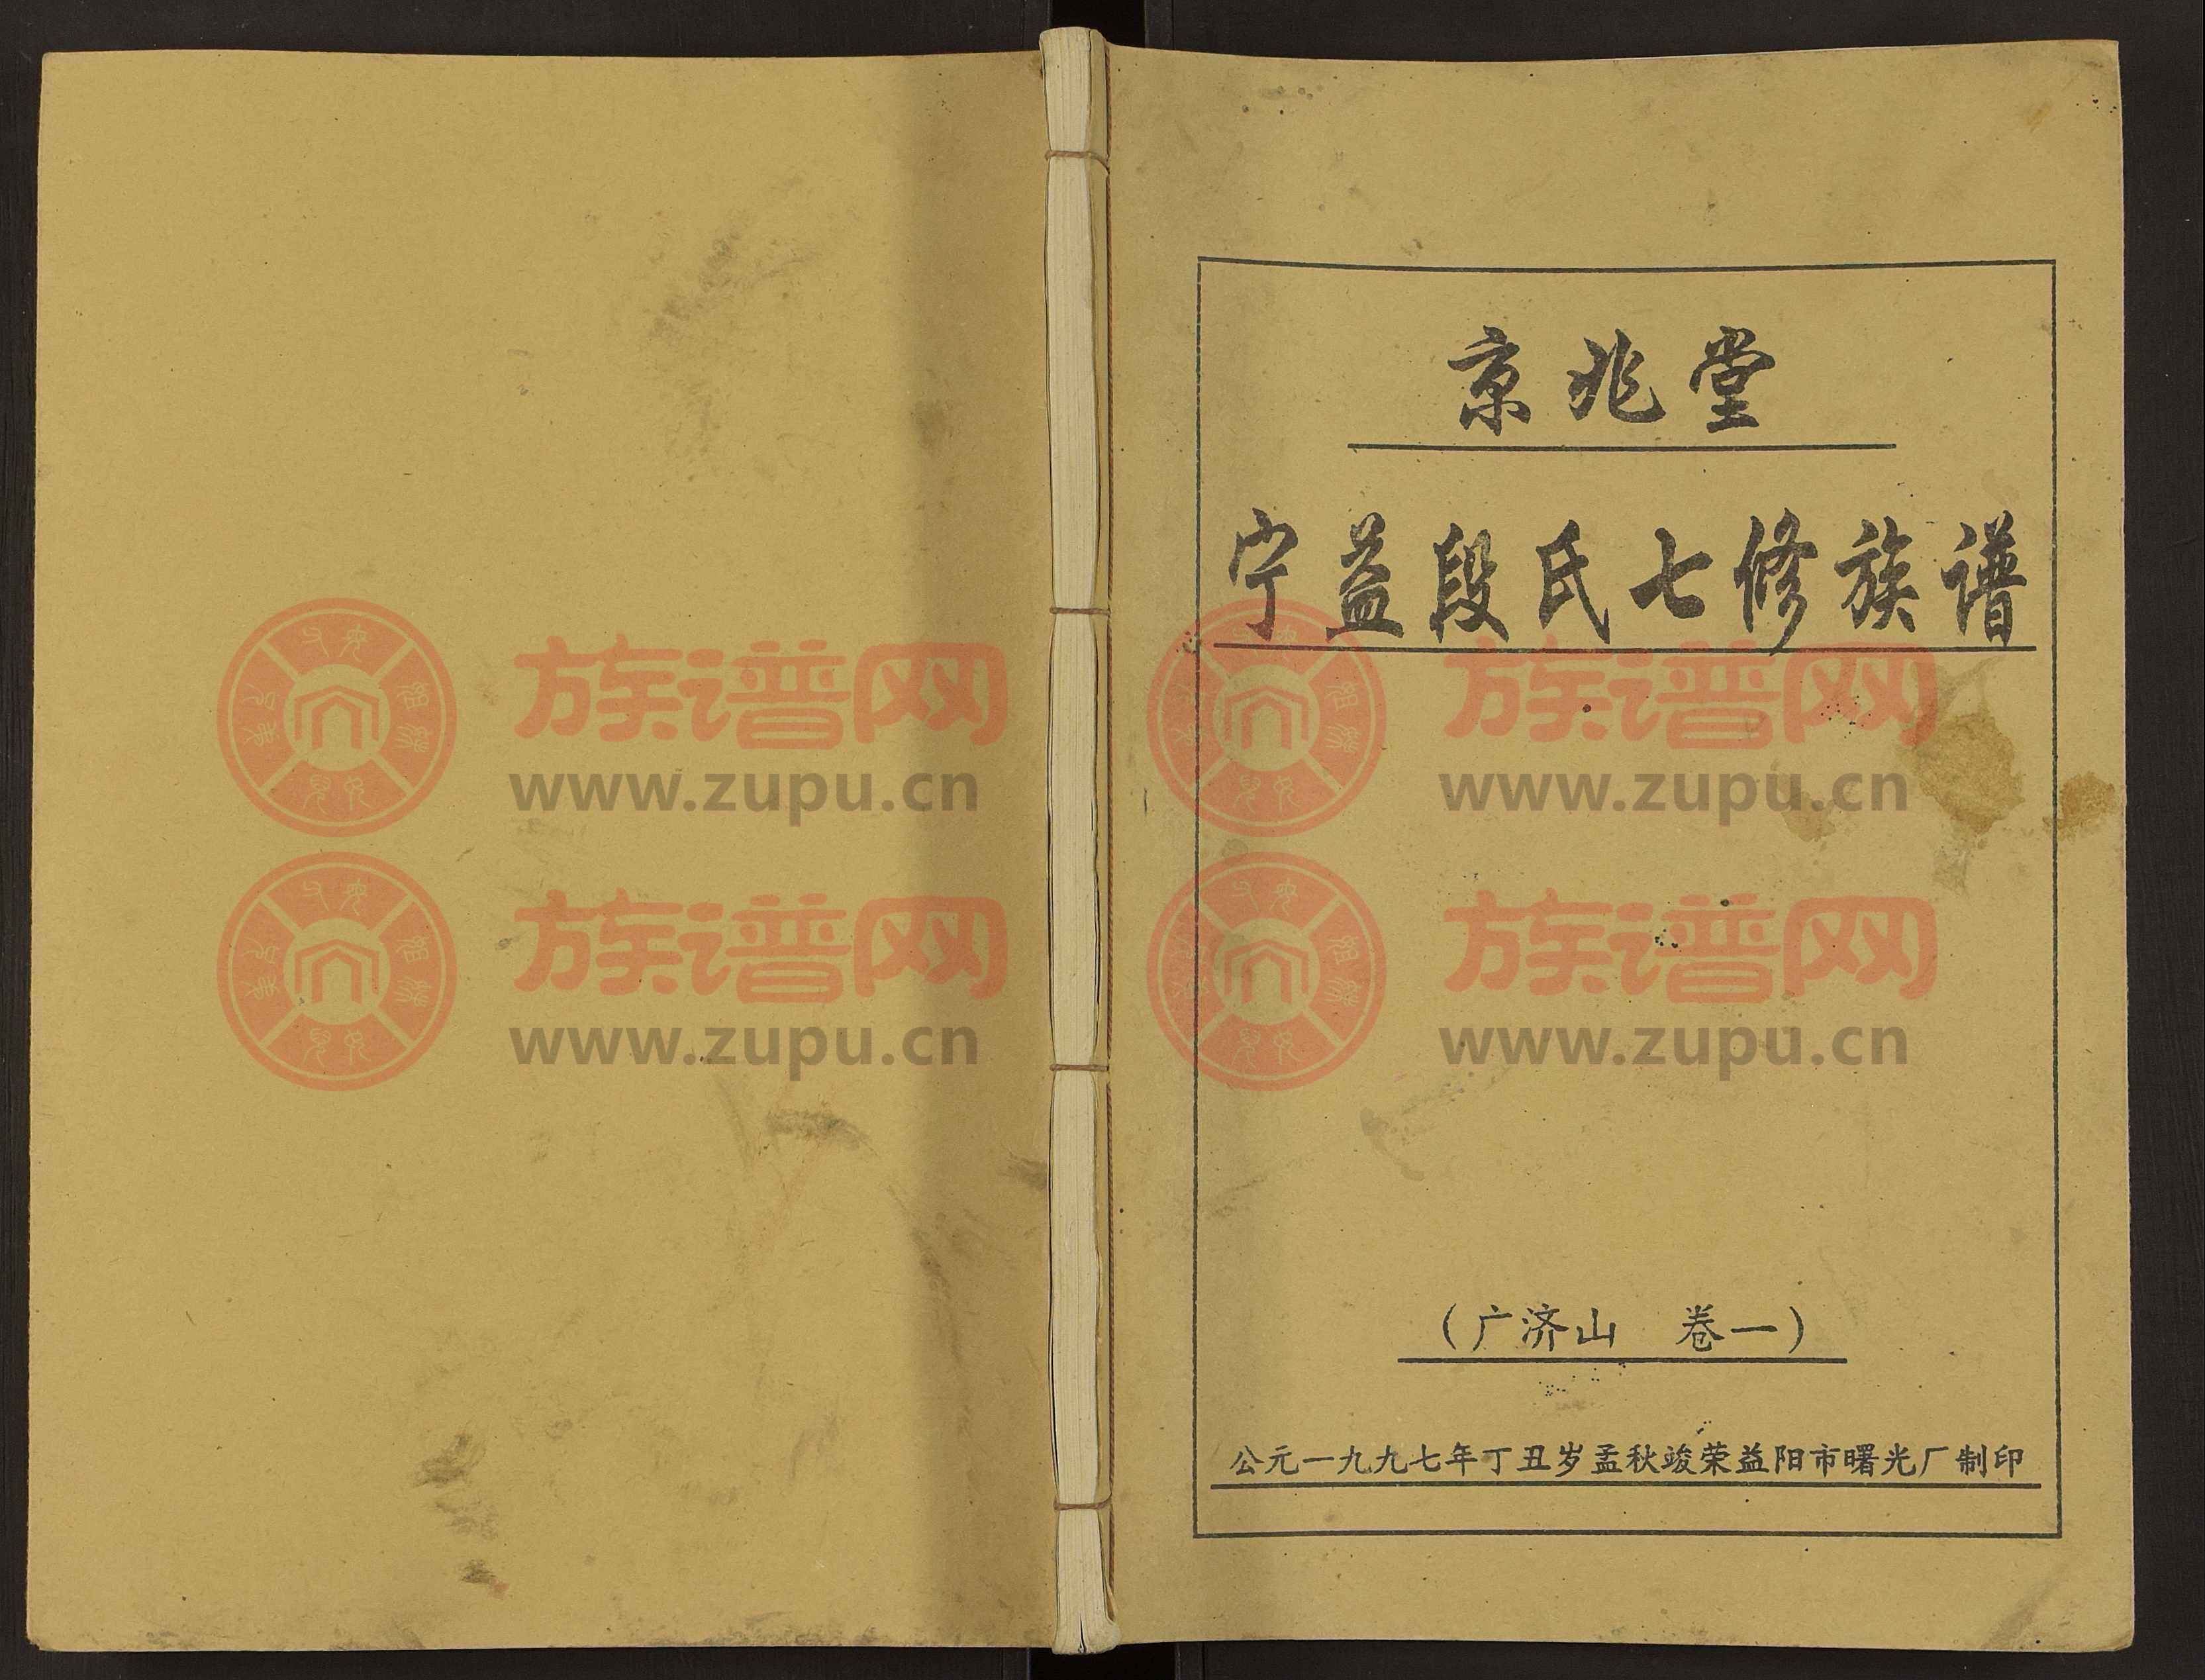 京兆堂
宁益段氏七修族谱
(广济山 卷一)
公元一九九七年丁丑岁孟秋竣荣益阳市曙光厂制印
族谱网
www.zupu.cn
族谱网
www.zupu.cn
族谱网
www.zupu.cn
族谱网
www.zupu.cn